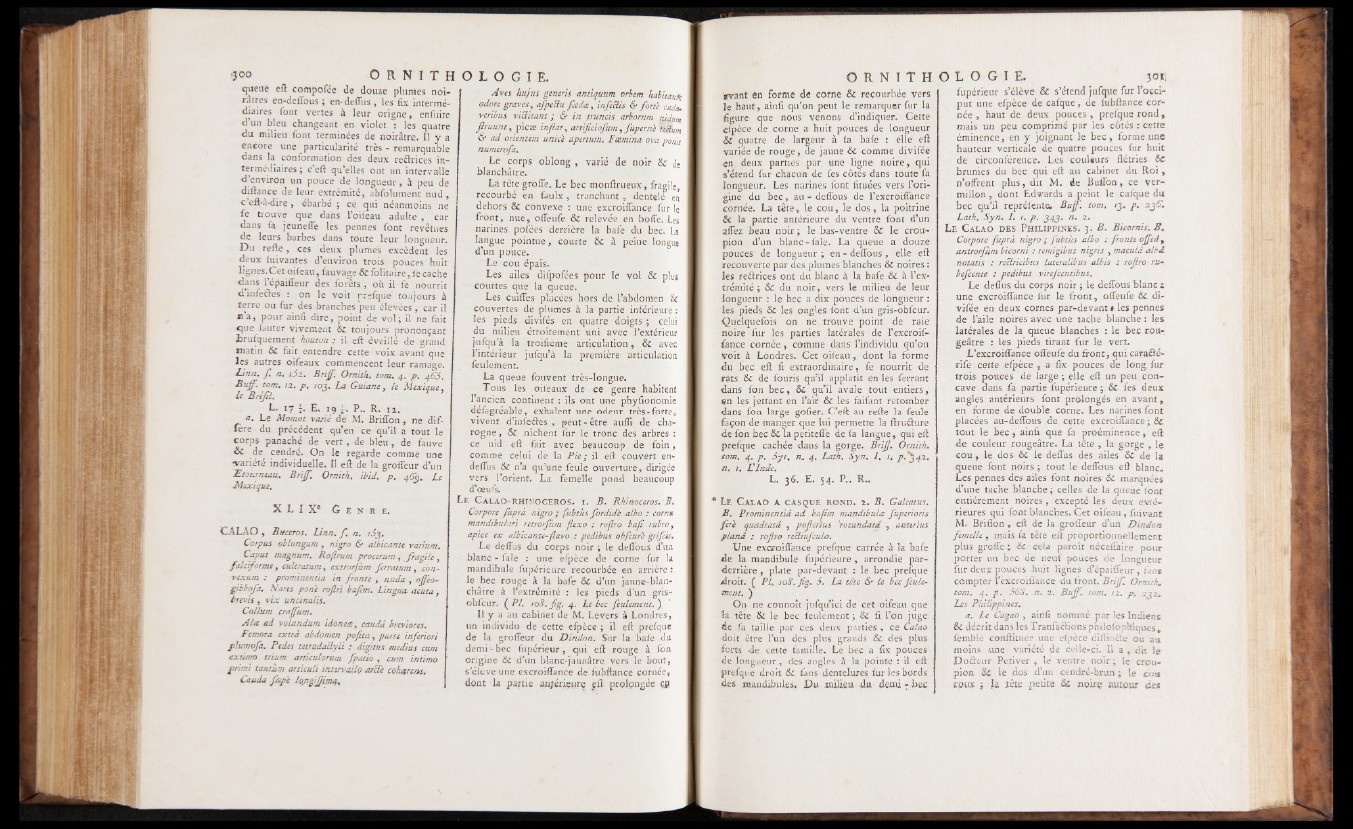 300 ORNITHOLOGIE.
queue eſt compoſée de douze plumes noi-
râtres en-deſſous ; en-deſſus, les ſix intermé-
diaires ſont vertes à leur origne, enſuite
d'un bleu changeant en violet : les quatre
du milieu ſont terminées de noirâtre. Il y a
encore une particularité très - remarquable
dans la conformation des deux rectrices in-
termédiaires ; c'eſt qu'elles ont un intervalle
d'environ un pouce de longueur, à peu de
diſtance de leur extrémité, abſolument nud,
c'eſt-à-dire, ébarbé ; ce qui néanmoins ne
ſe trouve que dans l'oiſeau adulte, car
dans ſa jeuneſſe les pennes ſont revêtues
de leurs barbes dans toute leur longueur.
Du reſte, ces deux plumes excèdent les
deux ſuivantes d'environ trois pouces huit
lignes. Cet oiſeau, ſauvage & ſolitaire, ſe cache
dans l'épaiſſeur des forêts, où il ſe nourrit
d'inſectes : on le voit preſque toujours à
terre ou ſur des branches peu élevées, car il
n'a, pour ainſi dire, point de vol ; il ne fait
que ſauter vivement & toujours prononçant
bruſquement houtou : il eſt éveillé de grand
matin & fait entendre cette voix avant que
les autres oiſeaux commencent leur ramage.
Linn. ſ. n. 152. Briſſ. Ornith. tom. 4. p. 465.
Buff. tom. 12. p. 103. La Guiane, le Mexique,
le Bréſil.
L. 17 ½. E. 19 ½. P.. R. 12.
a. Le Momot varié de M. Briſſon, ne dif-
fère du précédent qu'en ce qu'il a tout le
corps panaché de vert, de bleu, de fauve
& de cendré. On le regarde comme une
variété individuelle. Il eſt de la groſſeur d'un
Etourneau. Briſſ. Ornith. ibid. p. 469. Le
Mexique.
XLIXe GENRE.
CALAO, Buceros. Linn. ſ. n. 153.
Corpus oblongum, nigro & albicante varium.
Caput magnum. Roſtrum procerum, fragile,
falciforme, cultratum, extrorſùm ſerratum, con-
vexum : prominentia in fronte, nuda, oſſeo-
gibboſa. Nares ponè roſtri baſim. Lingua acuta,
brevis, vix uncinalis.
Collum craſſum.
Alæ ad volandum idoneæ, caudâ breviores.
Femora extrà abdomen poſita, parte inferiori
plumoſa. Pedes tetradactyli : digitus medius cum
extimo trium articulorum ſpatio, cum intimo
primi tantùm articuli intervallo arctè cohærens.
Cauda ſæpè longiſſima.
Aves hujus generis antiquum orbem habitant
odore graves, aſpectu fœdæ, inſectis & fortè cada-
veribus victitant ; & in truncis arborum nidum
ſtruunt, picæ inſtar, artificioſum, ſupernè tectum
& ad orientem unicè apertum. Fœmina ova ponit
numeroſa.
Le corps oblong, varié de noir & de
blanchâtre.
La tête groſſe. Le bec monſtrueux, fragile,
recourbé en faulx, tranchant, dentelé en
dehors & convexe : une excroiſſance ſur le
front, nue, oſſeuſe & relevée en boſſe. Les
narines poſées derrière la baſe du bec. La
langue pointue, courte & à peine longue
d'un pouce.
Le cou épais.
Les ailes diſpoſées pour le vol & plus
courtes que la queue.
Les cuiſſes placées hors de l'abdomen &
couvertes de plumes à la partie inférieure :
les pieds diviſés en quatre doigts ; celui
du milieu étroitement uni avec l'extérieur
juſqu'à la troiſième articulation, & avec
l'intérieur juſqu'à la première articulation
ſeulement.
La queue ſouvent très-longue.
Tous les oiſeaux de ce genre habitent
l'ancien continent : ils ont une phyſionomie
déſagréable, exhalent une odeur très-forte,
vivent d'inſectes, peut-être auſſi de cha-
rogne, & nichent ſur le tronc des arbres :
ce nid eſt fait avec beaucoup de ſoin,
comme celui de la Pie ; il eſt couvert en-
deſſus & n'a qu'une ſeule ouverture, dirigée
vers l'orient. La femelle pond beaucoup
d'œufs.
LE CALAO-RHINOCEROS. 1. B. Rhinoceros. B.
Corpore ſuprà nigro ; ſubtùs ſordidè albo : cornu
mandibulari retrorſùm flexo : roſtro baſi rubro,
apice ex albicante-flavo : pedibus obſcurè griſeis.
Le deſſus du corps noir ; le deſſous d'un
blanc - ſale : une eſpèce de corne ſur la
mandibule ſupérieure recourbée en arrière :
le bec rouge à la baſe & d'un jaune-blan-
châtre à l'extrémité : les pieds d'un gris-
obſcur. ( Pl. 108. fig. 4. Le bec ſeulement. )
Il y a au cabinet de M. Levers à Londres,
un individu de cette eſpèce ; il eſt preſque
de la groſſeur du Dindon. Sur la baſe du
demi - bec ſupérieur, qui eſt rouge à ſon
origine & d'un blanc-jaunâtre vers le bout,
s'élève une excroiſſance de ſubſtance cornée,
dont la partie antérieure eſt prolongée en
ORNITHOLOGIE. 301
avant en forme de corne & recourbée vers
le haut, ainſi qu'on peut le remarquer ſur la
figure que nous venons d'indiquer. Cette
eſpèce de corne a huit pouces de longueur
& quatre de largeur à ſa baſe : elle eſt
variée de rouge, de jaune & comme diviſée
en deux parties par une ligne noire, qui
s'étend ſur chacun de ſes côtés dans toute ſa
longueur. Les narines ſont ſituées vers l'ori-
gine du bec, au - deſſous de l'excroiſſance
cornée. La tête, le cou, le dos, la poitrine
& la partie antérieure du ventre ſont d'un
aſſez beau noir ; le bas-ventre & le crou-
pion d'un blanc-ſale. La queue a douze
pouces de longueur ; en - deſſous, elle eſt
recouverte par des plumes blanches & noires :
les rectrices ont du blanc à la baſe & à l'ex-
trémité ; & du noir, vers le milieu de leur
longueur : le bec a dix pouces de longueur :
les pieds & les ongles ſont d'un gris-obſcur.
Quelquefois on ne trouve point de raie
noire ſur les parties latérales de l'excroiſ-
ſance cornée, comme dans l'individu qu'on
voit à Londres. Cet oiſeau, dont la forme
du bec eſt ſi extraordinaire, ſe nourrit de
rats & de ſouris qu'il applatit en les ſerrant
dans ſon bec, & qu'il avale tout entiers,
en les jettant en l'air & les faiſant retomber
dans ſon large goſier. C'eſt au reſte la ſeule
façon de manger que lui permette la ſtructure
de ſon bec & la petiteſſe de ſa langue, qui eſt
preſque cachée dans ſa gorge. Briſſ. Ornith.
tom. 4. p. 571. n. 4. Lath. Syn. I. 1. p. 342.
n. 1. L'Inde.
L. 36. E. 54. P.. R..
* LE CALAO A CASQUE ROND. 2. B. Galeatus.
B. Prominentiâ ad baſim mandibulæ ſuperioris
ferè quadratâ, poſteriùs rotundatâ, anteriùs
planâ : roſtro rectiuſculo.
Une excroiſſance preſque carrée à la baſe
de la mandibule ſupérieure, arrondie par-
derrière, plate par-devant : le bec preſque
droit. ( Pl. 108. fig. 5. La tête & le bec ſeule-
ment. )
On ne connoît juſqu'ici de cet oiſeau que
la tête & le bec ſeulement ; & ſi l'on juge
de ſa taille par ces deux parties, ce Calao
doit être l'un des plus grands & des plus
forts de cette famille. Le bec a ſix pouces
de longueur, des angles à la pointe : il eſt
preſque droit & ſans dentelures ſur les bords
des mandibules. Du milieu du demi - bec
ſupérieur s'élève & s'étend juſque ſur l'occi-
put une eſpèce de caſque, de ſubſtance cor-
née, haut de deux pouces, preſque rond,
mais un peu comprimé par les côtés : cette
éminence, en y joignant le bec, forme une
hauteur verticale de quatre pouces ſur huit
de circonférence. Les couleurs flétries &
brunies du bec qui eſt au cabinet du Roi,
n'offrent plus, dit M. de Buffon, ce ver-
millon, dont Edwards a peint le caſque du
bec qu'il repréſente. Buff. tom. 13. p. 236.
Lath. Syn. I. 1. p. 343. n. 2.
LE CALAO DES PHILIPPINES. 3. B. Bicornis. B.
Corpore ſuprà nigro ; ſubtùs albo : fronte oſſeâ,
antrorſùm bicorni : remigibus nigris, maculâ albâ
notatis : rectricibus lateralibus albis : roſtro ru-
beſcente : pedibus vireſcentibus.
Le deſſus du corps noir ; le deſſous blanc :
une excroiſſance ſur le front, oſſeuſe & di-
viſée en deux cornes par-devant : les pennes
de l'aile noires avec une tache blanche : les
latérales de la queue blanches : le bec rou-
geâtre : les pieds tirant ſur le vert.
L'excroiſſance oſſeuſe du front, qui caracté-
riſe cette eſpèce, a ſix pouces de long ſur
trois pouces de large ; elle eſt un peu con-
cave dans ſa partie ſupérieure ; & ſes deux
angles antérieurs ſont prolongés en avant,
en forme de double corne. Les narines ſont
placées au-deſſous de cette excroiſſance ; &
tout le bec, ainſi que ſa proéminence, eſt
de couleur rougeâtre. La tête, la gorge, le
cou, le dos & le deſſus des ailes & de la
queue ſont noirs ; tout le deſſous eſt blanc.
Les pennes des ailes ſont noires & marquées
d'une tache blanche ; celles de la queue ſont
entièrement noires, excepté les deux exté-
rieures qui ſont blanches. Cet oiſeau, ſuivant
M. Briſſon, eſt de la groſſeur d'un Dindon
femelle, mais ſa tête eſt proportionnellement
plus groſſe ; & cela paroît néceſſaire pour
porter un bec de neuf pouces de longueur
ſur deux pouces huit lignes d'épaiſſeur, ſans
compter l'excroiſſance du front. Briſſ. Ornith.
tom. 4. p. 568. n. 2. Buff. tom. 12. p. 232.
Les Philippines.
a. Le Cagao, ainſi nommé par les Indiens
& décrit dans les Tranſactions philoſophiques,
ſemble conſtituer une eſpèce diſtincte ou au
moins une variété de celle-ci. Il a, dit le
Docteur Petiver, le ventre noir ; le crou-
pion & le dos d'un cendré-brun ; le cou
roux ; la tête petite & noire autour des